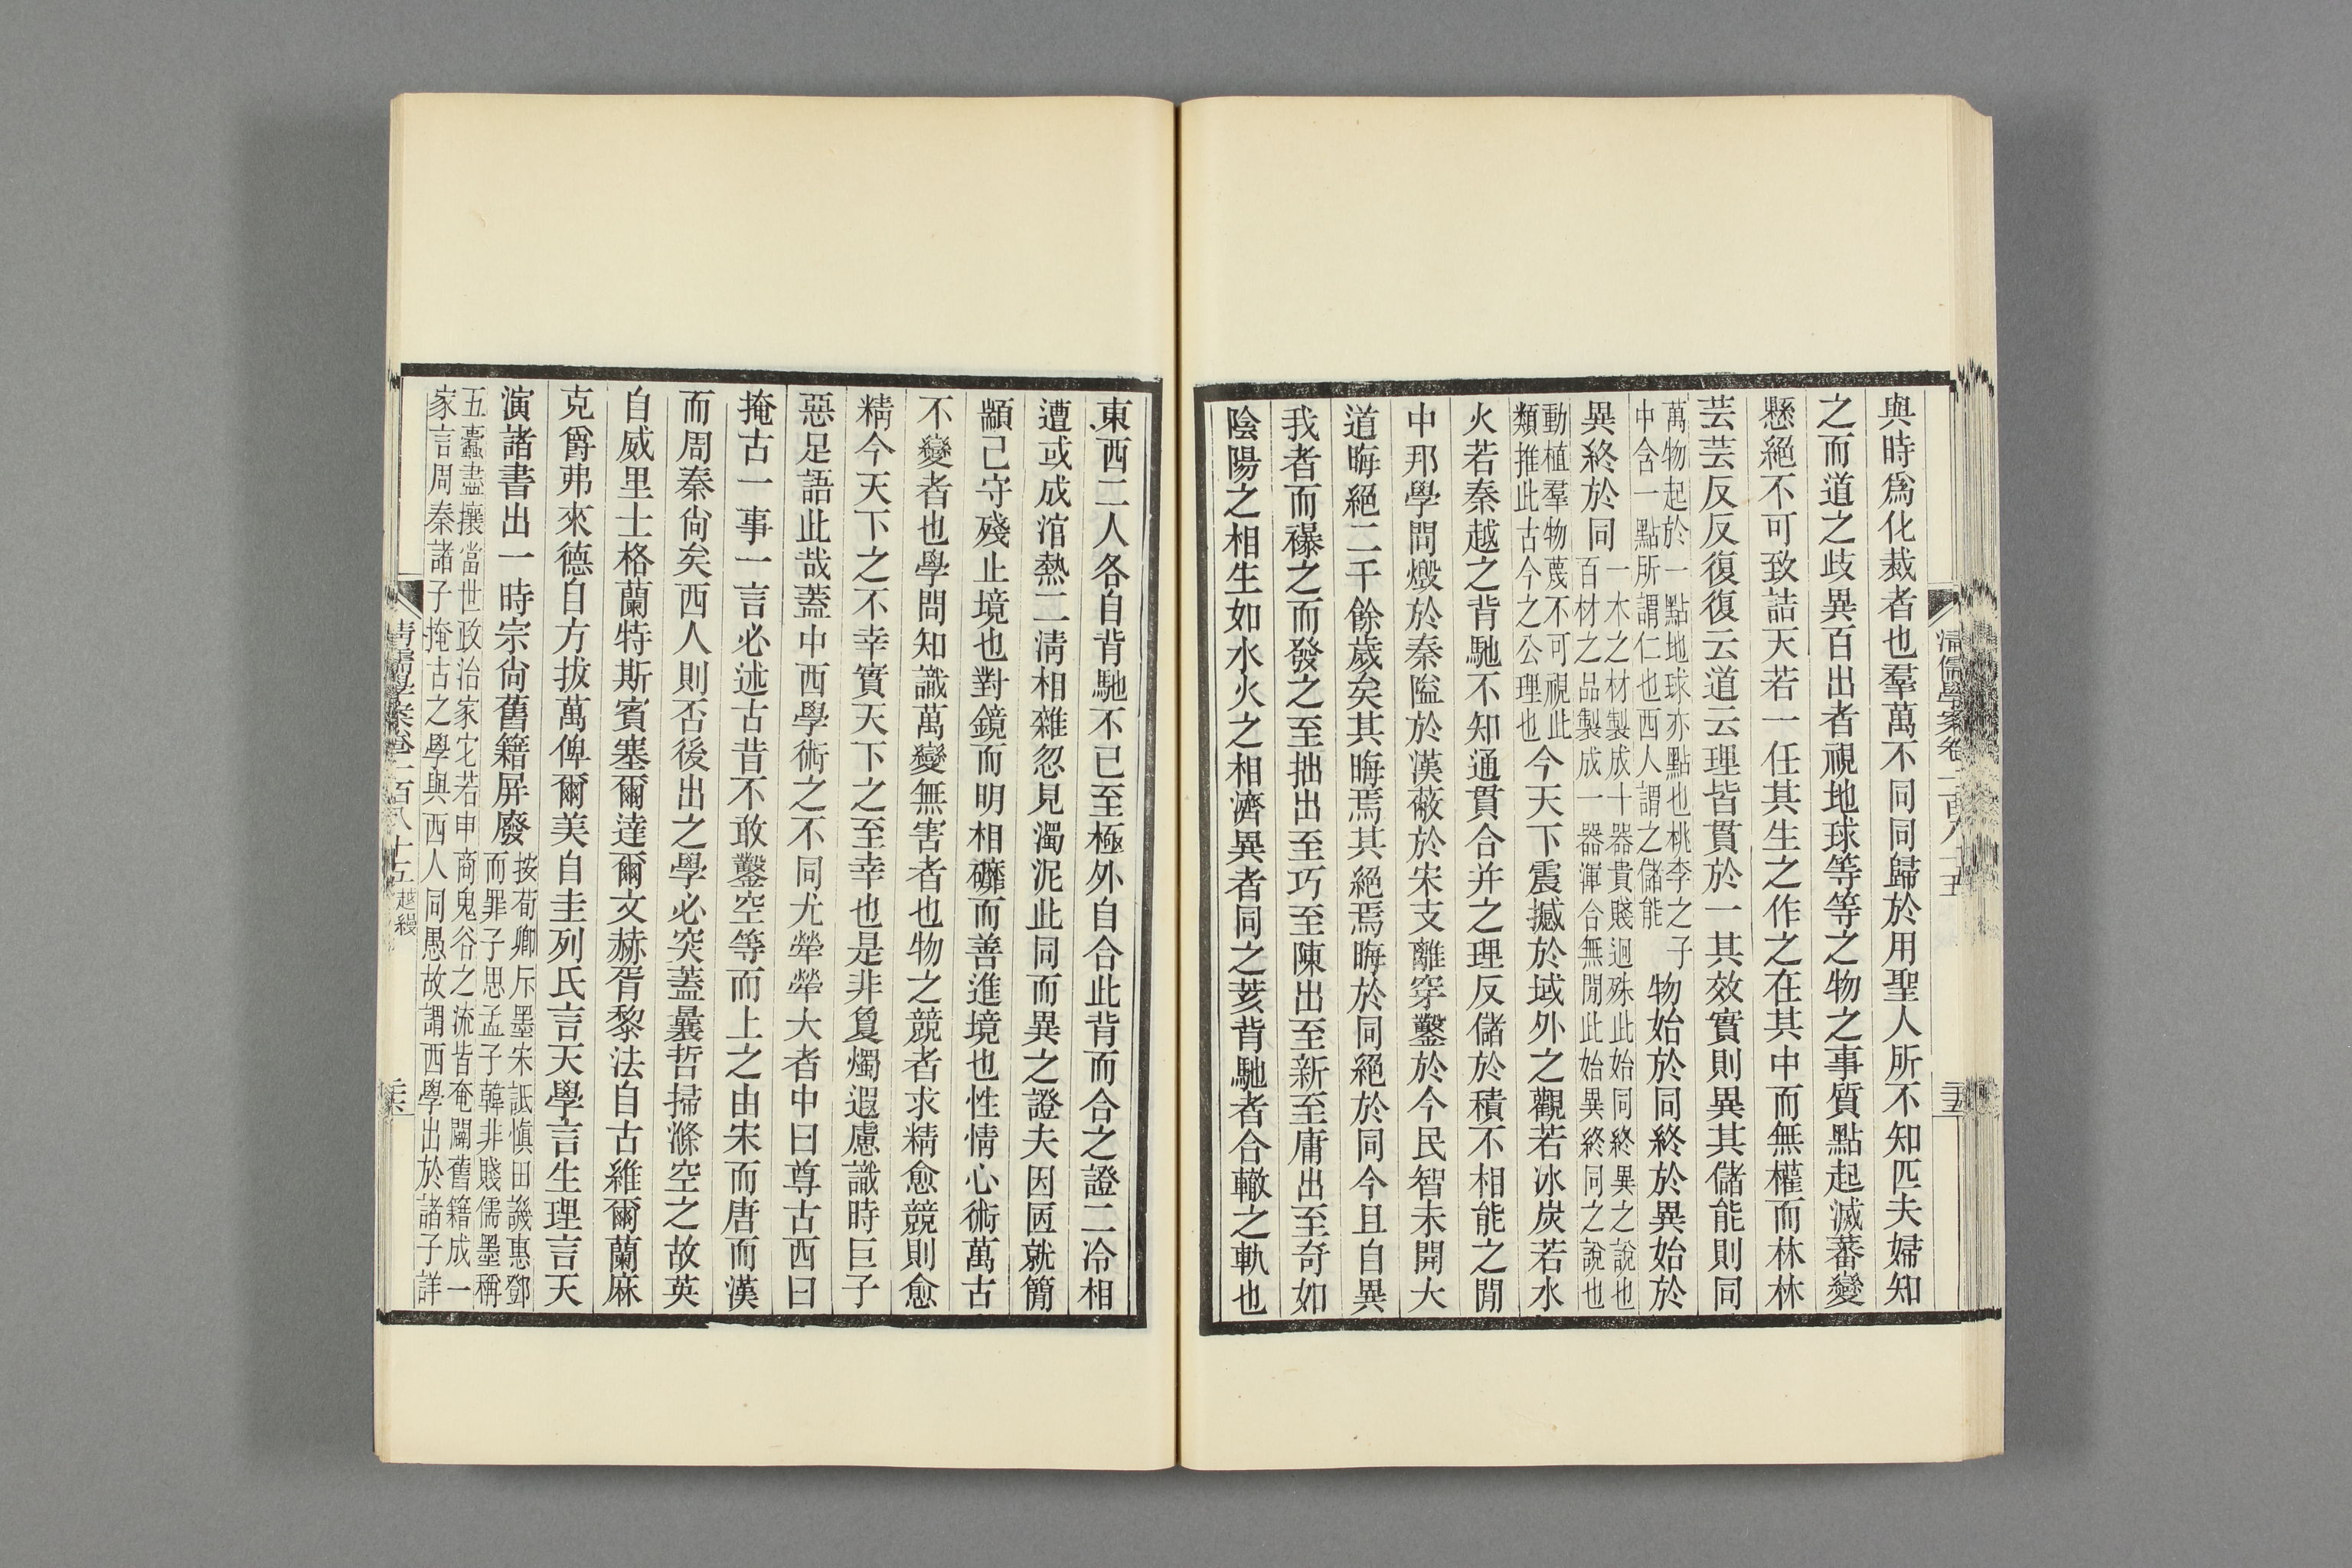 與時爲化裁者也羣萬不同同歸於用聖人所不知匹夫婦知
之而道之歧異百出者視地球等等之物之事質點起滅蕃變
懸絕不可致詰天若一任其生之作之在其中而無權而林林
芸芸反反復復云道云理皆貫於一其效實則異其儲能則同
萬物起於一點地球亦點也桃李之子
中含一點所謂仁也西人謂之儲能
物始於同終於異始於
異終於同
一木之材製成十器貴賤迥殊此始同終異之說也
百材之品製成一器渾合無閒此始異終同之說也
動植羣物蔑不可視此
類推此古今之公理也
今天下震撼於域外之觀若冰炭若水
火若秦越之背馳不知通貫合并之理反儲於積不相能之閒
中邦學問燬於秦隘於漢蔽於宋支離穿鑿於今民智未開大
道晦絕二千餘歲矣其晦焉其絕焉晦於同絕於同今且自異
我者而襮之而發之至拙出至巧至陳出至新至庸出至奇如
陰陽之相生如水火之相濟異者同之荄背馳者合轍之軌也
清儒學案卷一百八十五
三五
東西二人各自背馳不已至極外自合此背而合之證二冷相
遭或成涫熱二淸相雜忽見濁泥此同而異之證夫因陋就簡
顓己守殘止境也對鏡而明相礲而善進境也性情心術萬古
不變者也學問知識萬變無害者也物之競者求精愈競則愈
精今天下之不幸實天下之至幸也是非敻燭遐慮識時巨子
惡足語此哉蓋中西學術之不同尤犖犖大者中曰尊古西曰
掩古一事一言必述古昔不敢鑿空等而上之由宋而唐而漢
而周秦尙矣西人則否後出之學必突蓋曩哲掃滌空之故英
自威里士格蘭特斯賓塞爾達爾文赫胥黎法自古維爾蘭麻
克爵弗來德自方拔萬俾爾美自圭列氏言天學言生理言天
演諸書出一時宗尙舊籍屏廢
按荀卿斥墨宋詆愼田譏惠鄧
而罪子思孟子韓非賤儒墨稱
五蠹盡攘當世政治家它若申商鬼谷之流皆奄闢舊籍成一
家言周秦諸子掩古之學與西人同愚故謂西學出於諸子詳
清儒學案卷一百八十五 越縵
三六